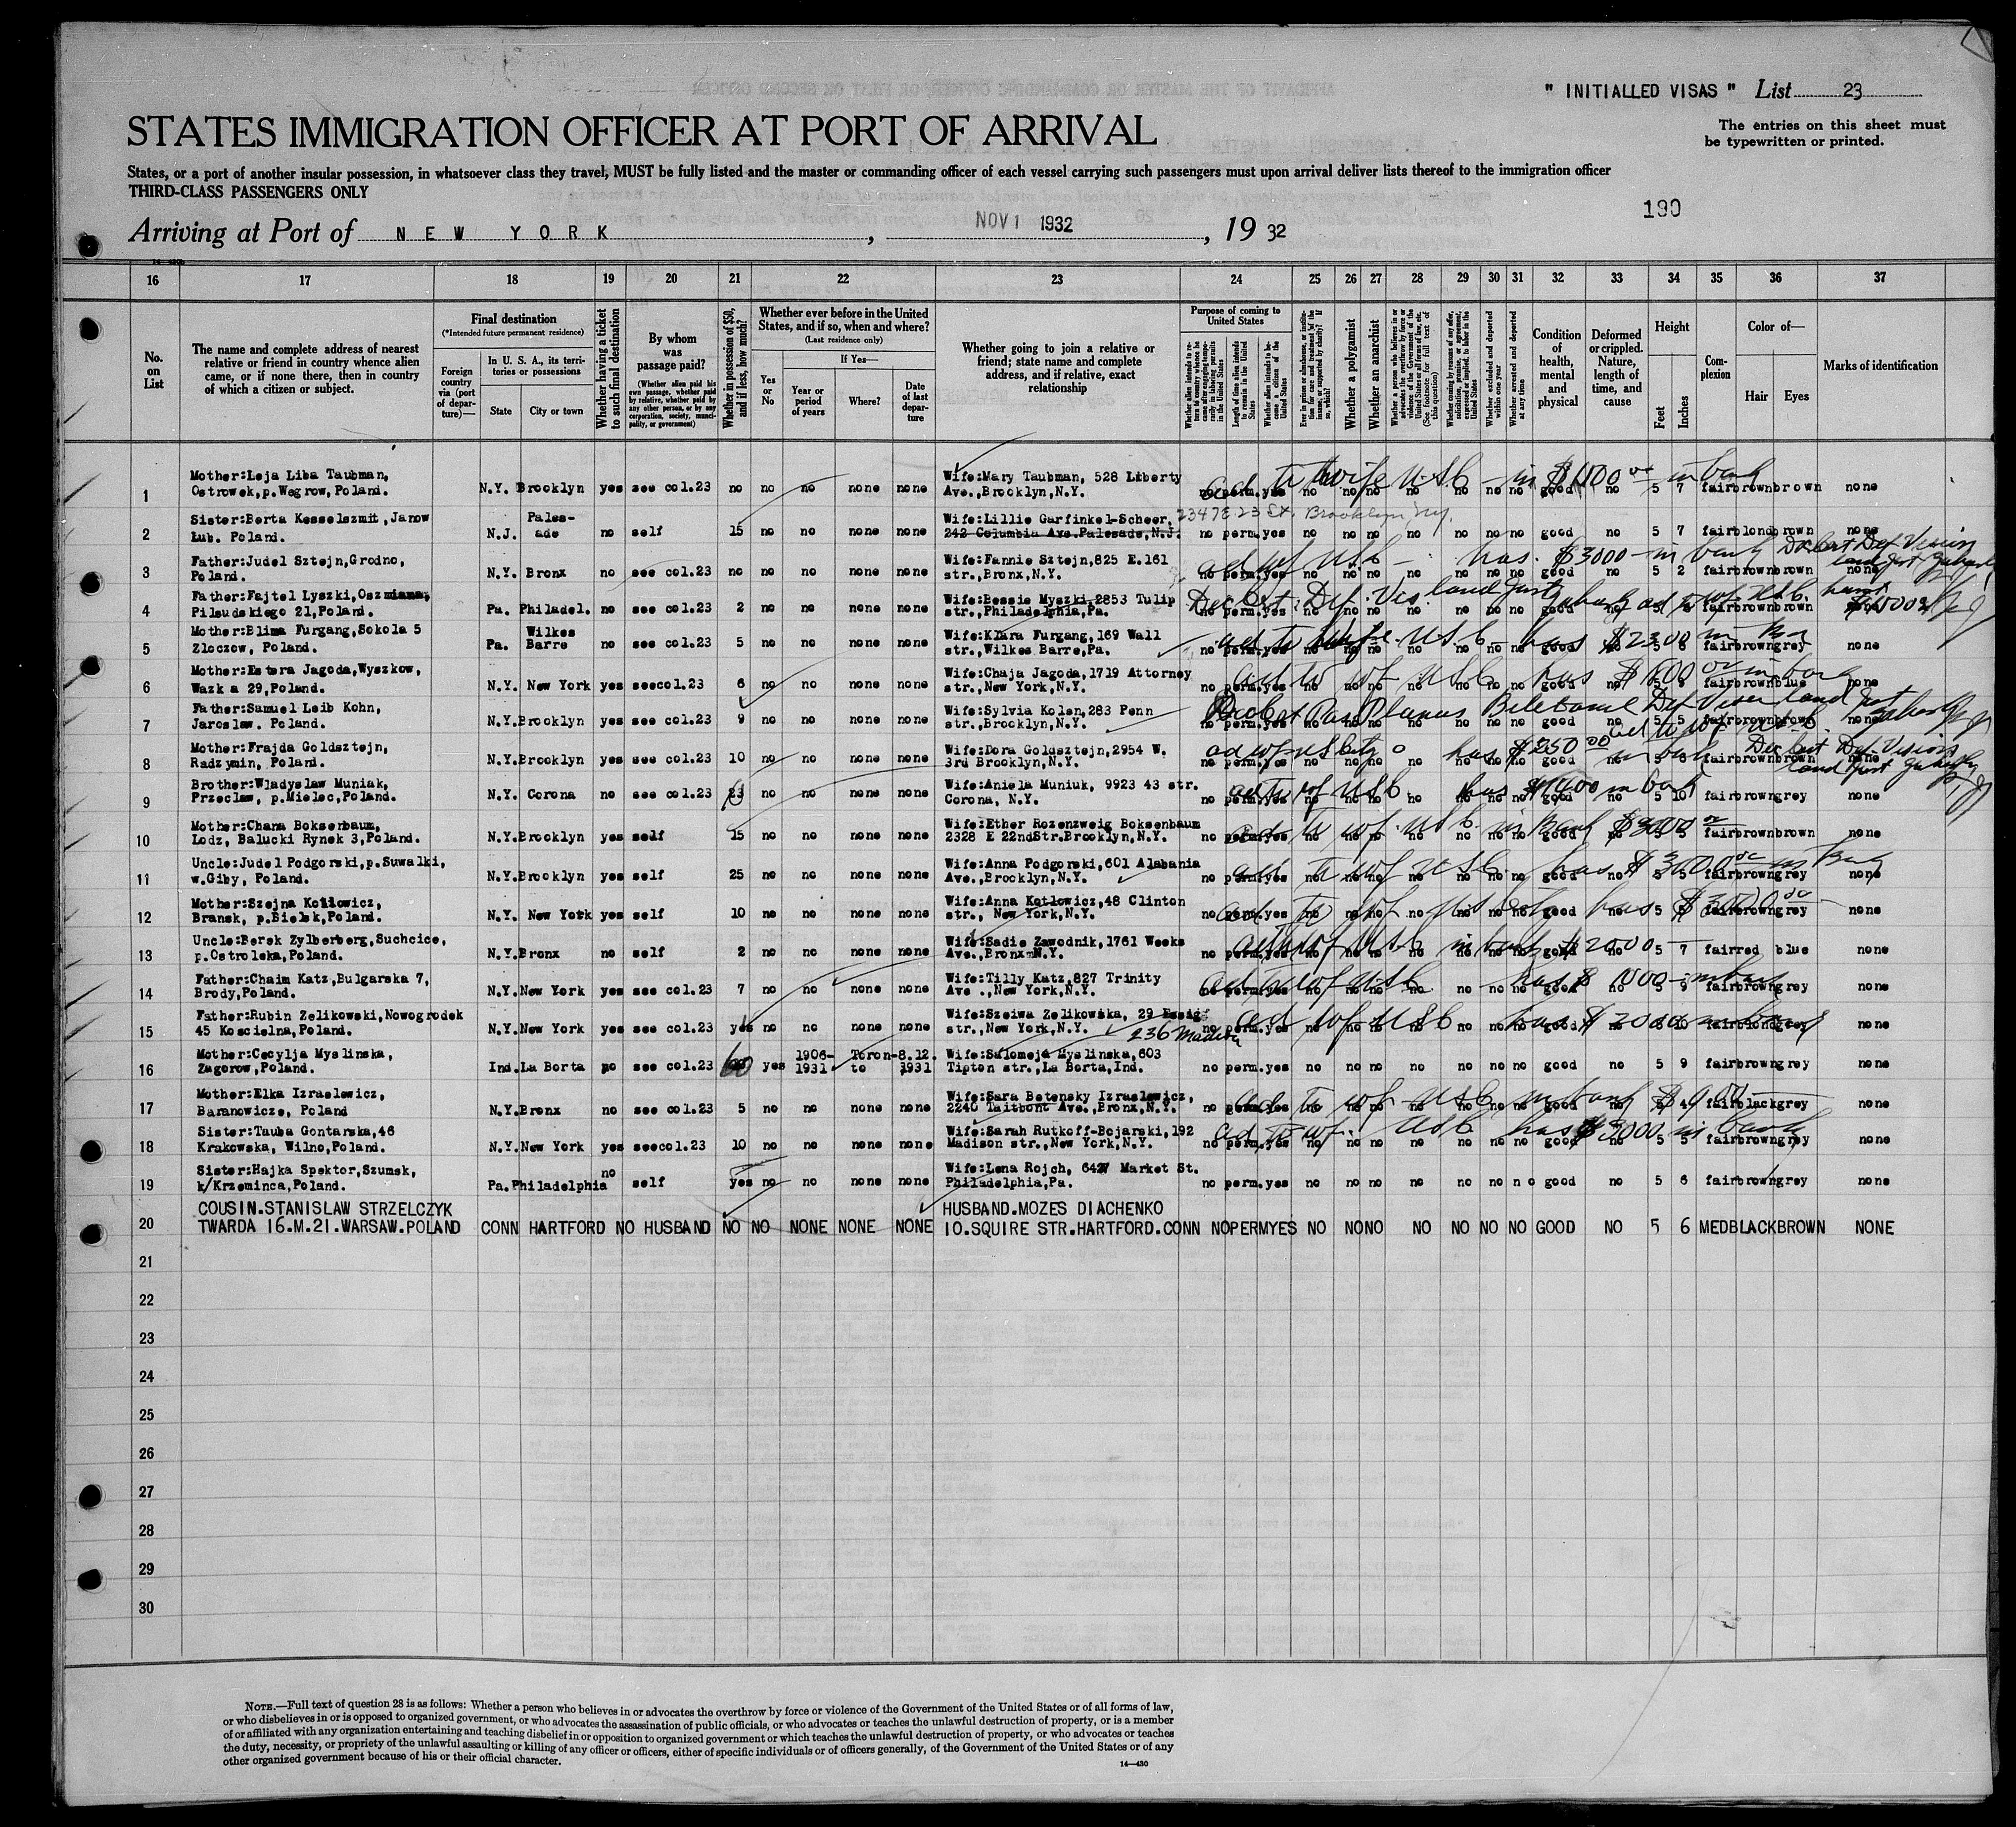 " INITIALLED VISAS " List 23
STATES IMMIGRATION OFFICER AT PORT OF ARRIVAL
The entries on this sheet must
be typewritten or printed.
States, or a port of another insular possession, in whatsoever class they travel, MUST be fully listed and the master or commanding officer of each vessel carrying such passengers must upon arrival deliver lists thereof to the immigration officer
THIRD-CLASS PASSENGERS ONLY
190
Arriving at Port of NEW YORK, NOV 1 1932, 19 32
16 17 18 19 20 21 22 23 24 25 26 27 28 29 30 31 32 33 34 35 36 37
No. on List
The name and complete address of nearest relative or friend in country whence alien came, or if none there, then in country of which a citizen or subject.
Final destination
(*Intended future permanent residence)
Foreign country via (port of departure)—
In U. S. A., its territories or possessions
State
City or town
Whether having a ticket to such final destination
By whom was passage paid?
(Whether alien paid his own passage, whether paid by relative, whether paid by any other person, or by any corporation, society, municipality, or government)
Whether in possession of $50, and if less, how much?
Whether ever before in the United States, and if so, when and where?
(Last residence only)
Yes or No
If Yes—
Year or period of years
Where?
Date of last departure
Whether going to join a relative or friend; state name and complete address, and if relative, exact relationship
Purpose of coming to United States
Length of time alien intends to remain in the United States
Whether alien intends to become a citizen of the United States
Whether a polygamist
Whether an anarchist
Whether excluded and deported within one year
Whether arrested and deported at any time
Condition of health, mental and physical
Deformed or crippled. Nature, length of time, and cause
Height
Feet
Inches
Complexion
Color of—
Hair
Eyes
Marks of identification
1 Mother:Leja Liba Taubman,
Ostrowek,p.Wegrow,Poland. N.Y. Brooklyn yes see col.23 no no no none none Wife:Mary Taubman, 528 Liberty
Ave.,Brooklyn,N.Y. no perm.yes no no no no no no no good no 5 7 fair brown brown none
ad to wife USC - in $1000 00 in bank
2 Sister:Berta Kesselszmit,Janow
Lub. Poland. N.J. Palesade no self 15 no no none none Wife:Lillie Garfinkel-Scheer,
242 Columbia Ave.Palesade,N.J. no perm.yes no no no no no no no good no 5 7 fair blond brown none
2347 E. 23 St. Brooklyn, N.Y.
3 Father:Judel Sztejn,Grodno,
Poland. N.Y. Bronx no see col.23 no no no none none Wife:Fannie Sztejn,825 E.161
str.,Bronx,N.Y. no perm.yes no no no no no no no good no 5 2 fair brown brown none
ad wf USC - has $3000 - in bank Dr Cert Def Vision
4 Father:Fajtel Lyszki,Oszmiana,
Pilsudskiego 21,Poland. Pa. Philadel. no see col.23 2 no no none none Wife:Bessie Myszki,2853 Tulip
str.,Philadelphia,Pa. no perm.yes no no no no no no no good no 5 fair brown brown none
5 Mother:Blima Furgang,Sokola 5
Zloczow, Poland. Pa. Wilkes Barre no see col.23 5 no no none none Wife:Klara Furgang,169 Wall
str.,Wilkes Barre,Pa. no perm.yes no no no no no no no good no 5 6 fair brown grey none
ad to wife USC - has $2300 in Bk
6 Mother:Estera Jagoda,Wyszkow,
Wazk a 29,Poland. N.Y. New York yes seecol.23 6 no no none none Wife:Chaja Jagoda,1719 Attorney
str.,New York,N.Y. no perm.yes no no no no no no no good no 5 fair brown blue none
ad to wf USC has $1600 00 in bank
7 Father:Samuel Leib Kohn,
Jaroslaw. Poland. N.Y.Brooklyn yes see col.23 9 no no none none Wife:Sylvia Kolen,283 Penn
str.,Brooklyn,N.Y. no perm.yes no no no no no no no good no 5 5 fair brown brown none
ad to wf USC
8 Mother:Frajda Goldsztejn,
Radzymin, Poland. N.Y.Brooklyn yes see col.23 10 no no none none Wife:Dora Goldsztejn,2954 W.
3rd Brooklyn,N.Y. no perm.yes no no no no no no no good no 5 fair brown brown none
has $250 00 in bank Dr Cert Def. Vision
9 Brother:Wladyslaw Muniak,
Przeclaw, p.Mielec,Poland. N.Y. Corona no see col.23 no no none none Wife:Aniela Muniuk, 9923 43 str.
Corona, N.Y. no perm.yes no no no no no no no good no 5 10 fair brown grey none
ad to wf USC has in bank
10 Mother:Chana Boksenbaum,
Lodz, Balucki Rynek 3,Poland. N.Y.Brooklyn yes self 15 no no none none Wife:Ether Rozenzweig Boksenbaum
2328 E 22ndStr.Brooklyn,N.Y. no perm.yes no no no no no no no good no 5 5 fair brown brown none
ad to wf. USC. in Bank $3000 00
11 Uncle:Judel Podgorski,p.Suwalki,
w.Giby, Poland. N.Y.Brooklyn yes self 25 no no none none Wife:Anna Podgorski,601 Alabania
Ave.,Brooklyn,N.Y. no perm.yes no no no no no no no good no 5 5 fair brown grey none
ad to wf USC has $3000 00 in Bank
12 Mother:Szejna Kotlowicz,
Bransk, p.Bielsk,Poland. N.Y. New York yes self 10 no no none none Wife:Anna Kotlowicz,48 Clinton
str., New York,N.Y. no perm.yes no no no no no no no good no 5 fair brown grey none
13 Uncle:Berek Zylberberg,Suchcice,
p.Ostroleka,Poland. N.Y.Bronx no self 2 no no none none Wife:Sadie Zawodnik,1761 Weeks
Ave.,Bronx N.Y. no perm.yes no no no no no no no good 5 7 fair red blue none
ad to wf USC in bank $2000 -
14 Father:Chaim Katz,Bulgarska 7,
Brody,Poland. N.Y.New York yes see col.23 7 no no none none Wife:Tilly Katz,827 Trinity
Ave .,New York,N.Y. no perm.yes no no no no no no no good no 5 9 fair brown grey none
ad to wf USC has $1000 - in bank
15 Father:Rubin Zelikowski,Nowogrodek
45 Koscielna,Poland. N.Y.New York yes see col.23 yes no no none none Wife:Szeiwa Zelikowska, 29 Essig
str.,New York,N.Y. no perm.yes no no no no no no no good fair blond grey none
236 Madison
ad wf USC has $2000 in bank
16 Mother:Cecylja Myslinska,
Zagorow,Poland. Ind.La Borta no see col.23 60 yes 1906-1931 Toronto 8.12.1931 Wife:Salomeja Myslinska,603
Tipton str.,La Borta,Ind. no perm.yes no no no no no no no good no 5 9 fair brown grey none
17 Mother:Elka Izraelewicz,
Baranowicze, Poland N.Y.Bronx no see col.23 5 no no none none Wife:Sara Betensky Izraelewicz,
2240 Taitbont Ave.,Bronx,N.Y. no perm.yes no no no no no no no good no fair black grey none
ad to wf USC in bank
18 Sister:Tauba Gontarska,46
Krakowska, Wilno,Poland. N.Y.New York yes seecol.23 10 no no none none Wife:Sarah Rutkoff-Bojarski,192
Madison str.,New York,N.Y. no perm.yes no no no no no no no good no 5 5 fair brown grey none
ad to wf. USC has $3000 in bank
19 Sister:Hajka Spektor,Szumsk,
k/Krzeminca,Poland. Pa.Philadelphia no self yes no no none none Wife:Lena Rojch, 6427 Market St.
Philadelphia,Pa. no perm.yes no no no no no no no good no 5 6 fair brown grey none
20 COUSIN.STANISLAW STRZELCZYK
TWARDA 16.M.21.WARSAW.POLAND CONN HARTFORD NO HUSBAND NO NO NONE NONE NONE HUSBAND.MOZES DIACHENKO
10.SQUIRE STR.HARTFORD.CONN NO PERM YES NO NO NO NO NO NO NO GOOD NO 5 6 MED BLACK BROWN NONE
21
22
23
24
25
26
27
28
29
30
NOTE.—Full text of question 28 is as follows: Whether a person who believes in or advocates the overthrow by force or violence of the Government of the United States or of all forms of law,
or who disbelieves in or is opposed to organized government, or who advocates the assassination of public officials, or who advocates or teaches the unlawful destruction of property, or is a member
of or affiliated with any organization entertaining and teaching disbelief in or opposition to organized government or which teaches the unlawful destruction of property, or who advocates or teaches
the duty, necessity, or propriety of the unlawful assaulting or killing of any officer or officers, either of specific individuals or of officers generally, of the Government of the United States or of any
other organized government because of his or their official character.
14—430